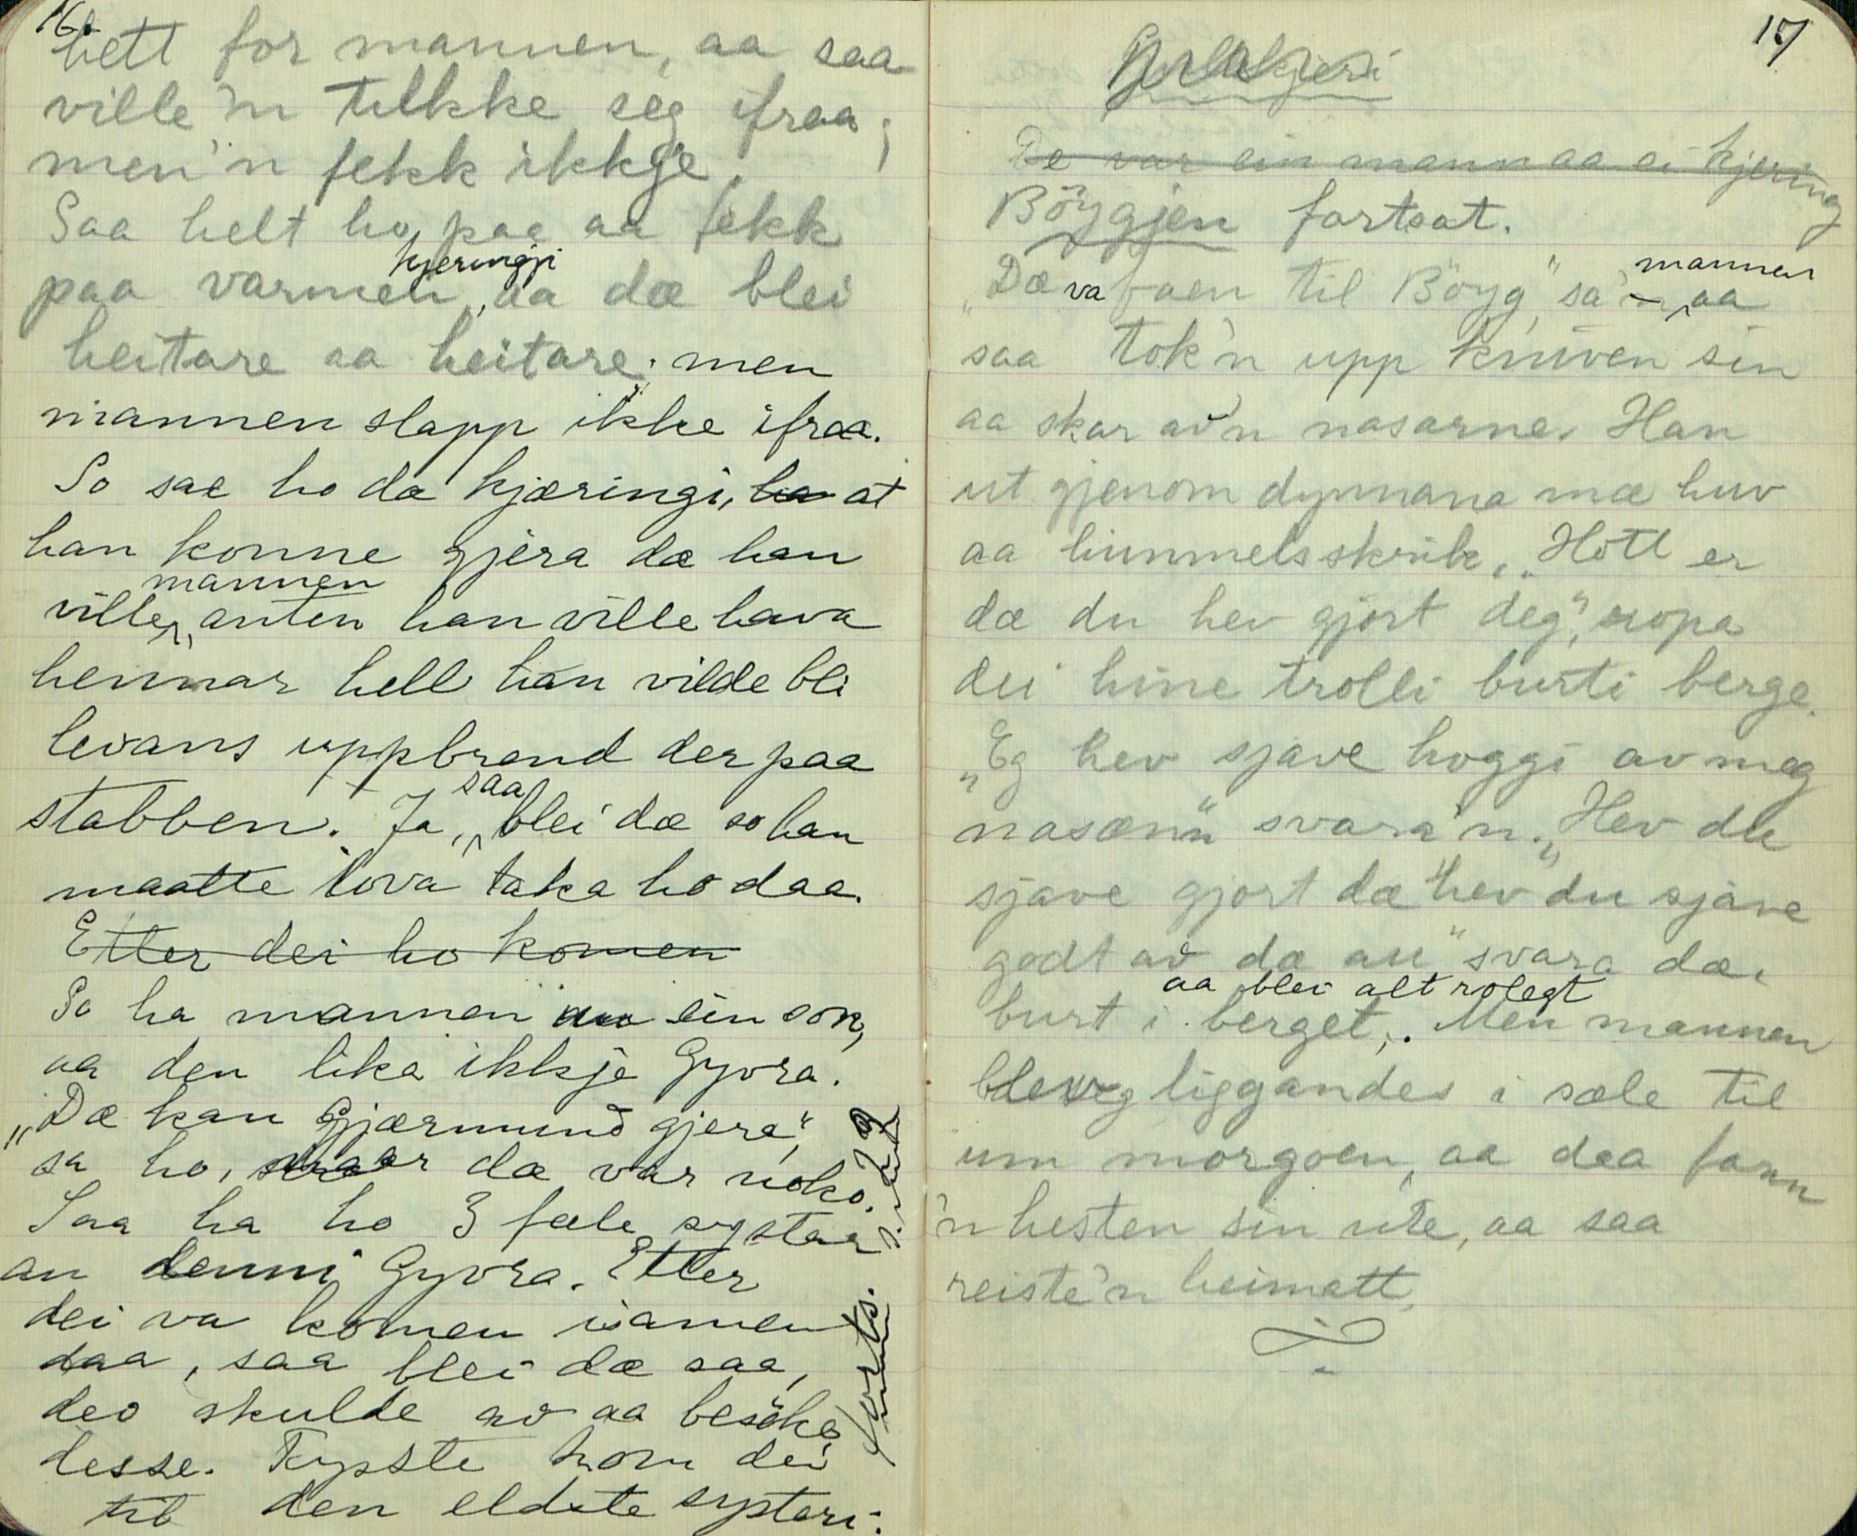 16.
hett for mannen, aa saa
ville'n tilkke seg ifraa;
men'n fekk ikkje.
Saa helt ho paa aa fekk
kjeringji
paa varmen, aa dæ blei
heitare aa heitare. men
mannen slapp ikke ifraa.
So sae ho dæ kjæringi, ha at
han konne gjera dæ han
mannen
ville, anten han ville hava
hennar hell han vilde bli
levans uppbrend der paa
saa
stabben. Ja, blei dæ so han
maatte lova taka ho daa.
Etter dei ho komen
So ha mannen ein son,
aa den lika ikkje Gyvra.
„Dæ kan Gjærmund gjera",
sa ho, naar dæ var noko.
Saa ha ho 3 fæle systaa
an denni Gyvra. Etter
dei va komen isamen
daa, saa blei dæ saa,
deo skulde av aa besöke
desse. Fyste kom dei
til den eldste systeri.
forts.
17
De var ein mann aa ei kjering
Böygjen fortsat.
mannen
„Dæ va faen til Böyg," sa'n aa
saa tok'n upp kniven sin
aa skar av'n nasarne. Han
ut gjenom dynnana mæ huv
aa himmelsskrik, „Hott er
dæ du hev gjort deg", ropa
dei hine trolli burti berge.
„Eg hev sjave hoggi av meg
nasæn" svara'n. „Hev du
sjave gjort dæ hev du sjave
godt av dæ au" svara dæ
aa blei alt rolegt
burt i berget,. Men mannen
blev liggandes i sæle til
um morgoen, aa daa fann
'n hesten sin ute, aa saa
reiste'n heimatt.